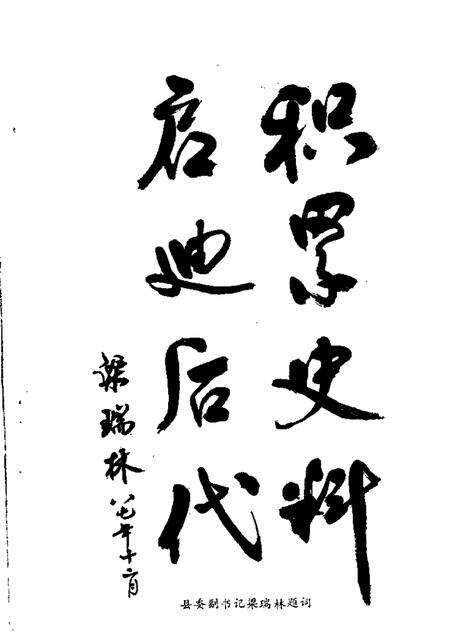 积累史料
启迪后代
梁瑞林
八七年十二月
县委副书记梁瑞林题词